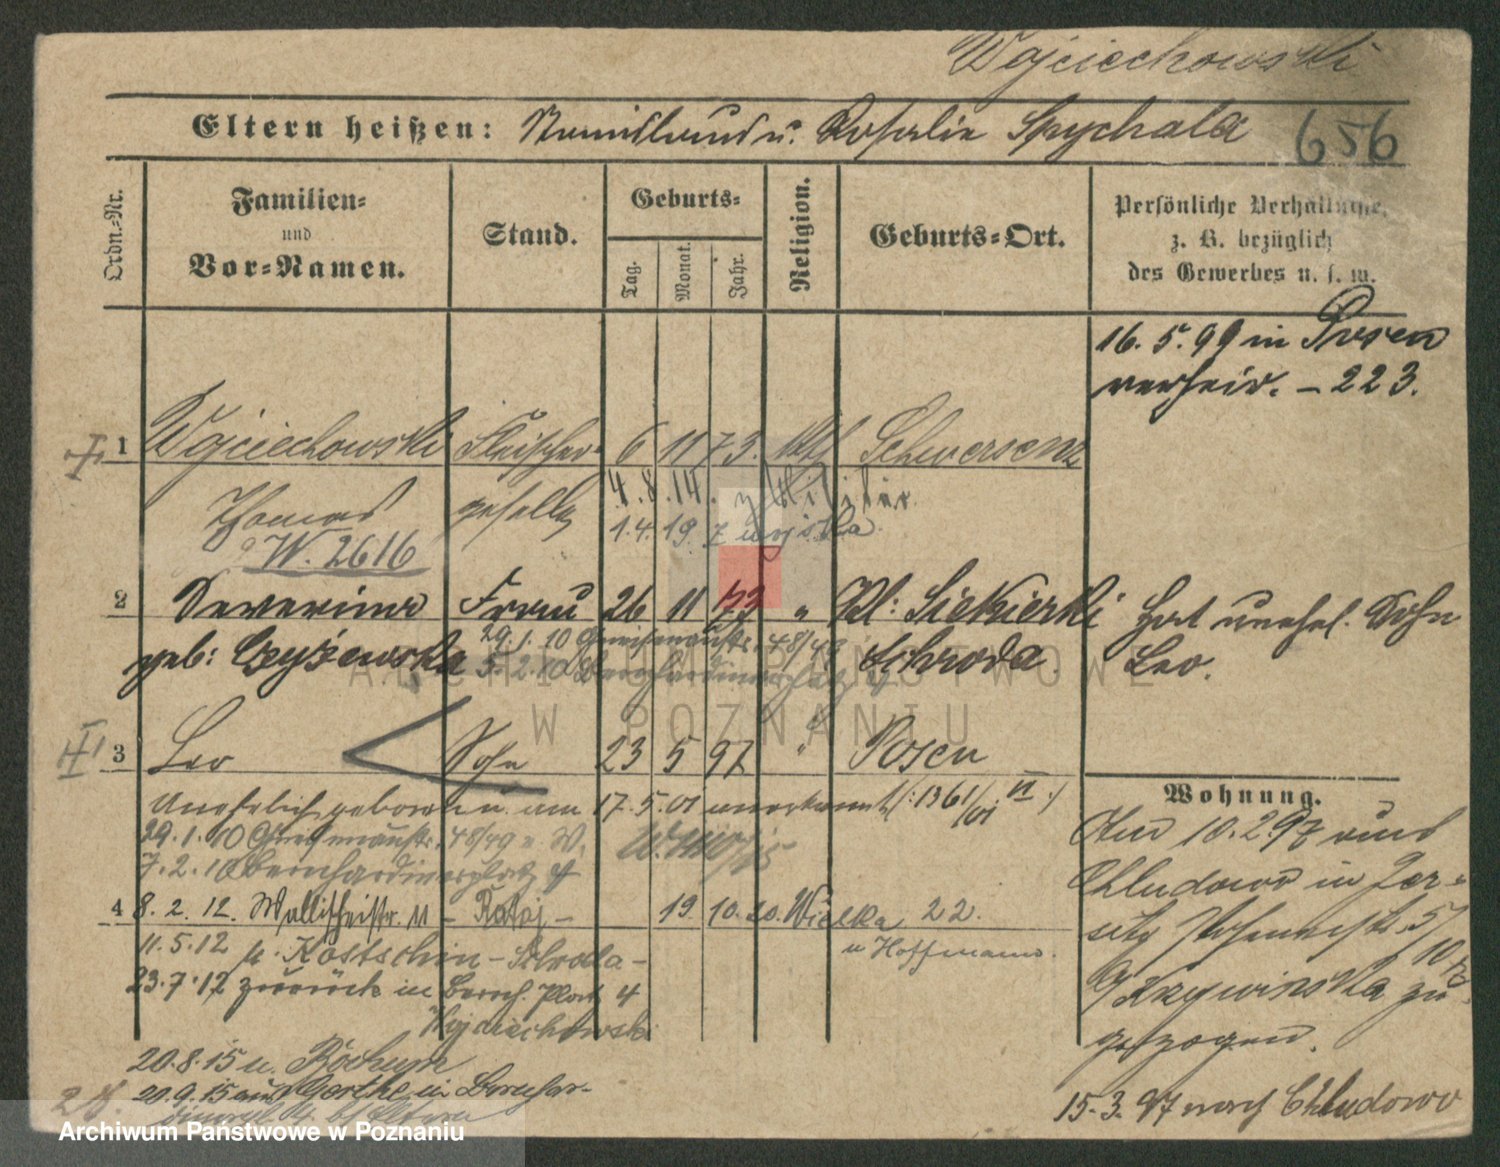 Wojciechowski
Eltern heißen: u. Rosalie Spychala 656
Ordn.-Nr.
Familien-
und
Vor-Namen.
Stand.
Geburts-
Tag.
Monat.
Jahr.
Religion.
Geburts-Ort.
Persönliche Verhältnisse,
z. B. bezüglich
des Gewerbes u. s. w.
16. 5. 99 in Posen
verheir. – 223.
1 Wojciechowski Fleischer- 6 11 73. kth Schwersenz
Thomas geselle 4. 8. 14. z. Militär.
1. 4. 19. z wojska.
W. 2616
2 Severina Frau 26 11 73 " Kl: Siekierki Hat unehel. Sohn
geb: Czyżewska Schroda Leo.
29. 1. 10 Gneisenaustr. 48/49
5. 2. 10 Bernhardinerplatz 4
3 Leo Sohn 23 5 97 " Posen
Unehelich geboren u. am 17. 5. 01 anerkannt (: 1361/01 II :)
29. 1. 10 Gneisenaustr. 48/49 W.
7. 2. 10 Bernhardinerplatz 4
4 8. 2. 12. Wallischeistr. 11 – Rataj – 19. 10. 20. Wielka 22.
u Hoffmann.
11. 5. 12 n. Kostschin – Schroda –
23. 7. 12 zurück in Bernh. Platz 4
Wojciechowski
20. 8. 15 n. Bochum
20. 9. 15 aus Gerthe in Bernhar-
Wohnung.
Am 10. 2. 97 aus
Chludowo in Jer-
sitz 5/
10 97
b/ Krzywinska zu-
gezogen.
15. 3. 97 nach Chludowo
ARCHIWUM PAŃSTWOWE
W POZNANIU
Archiwum Państwowe w Poznaniu